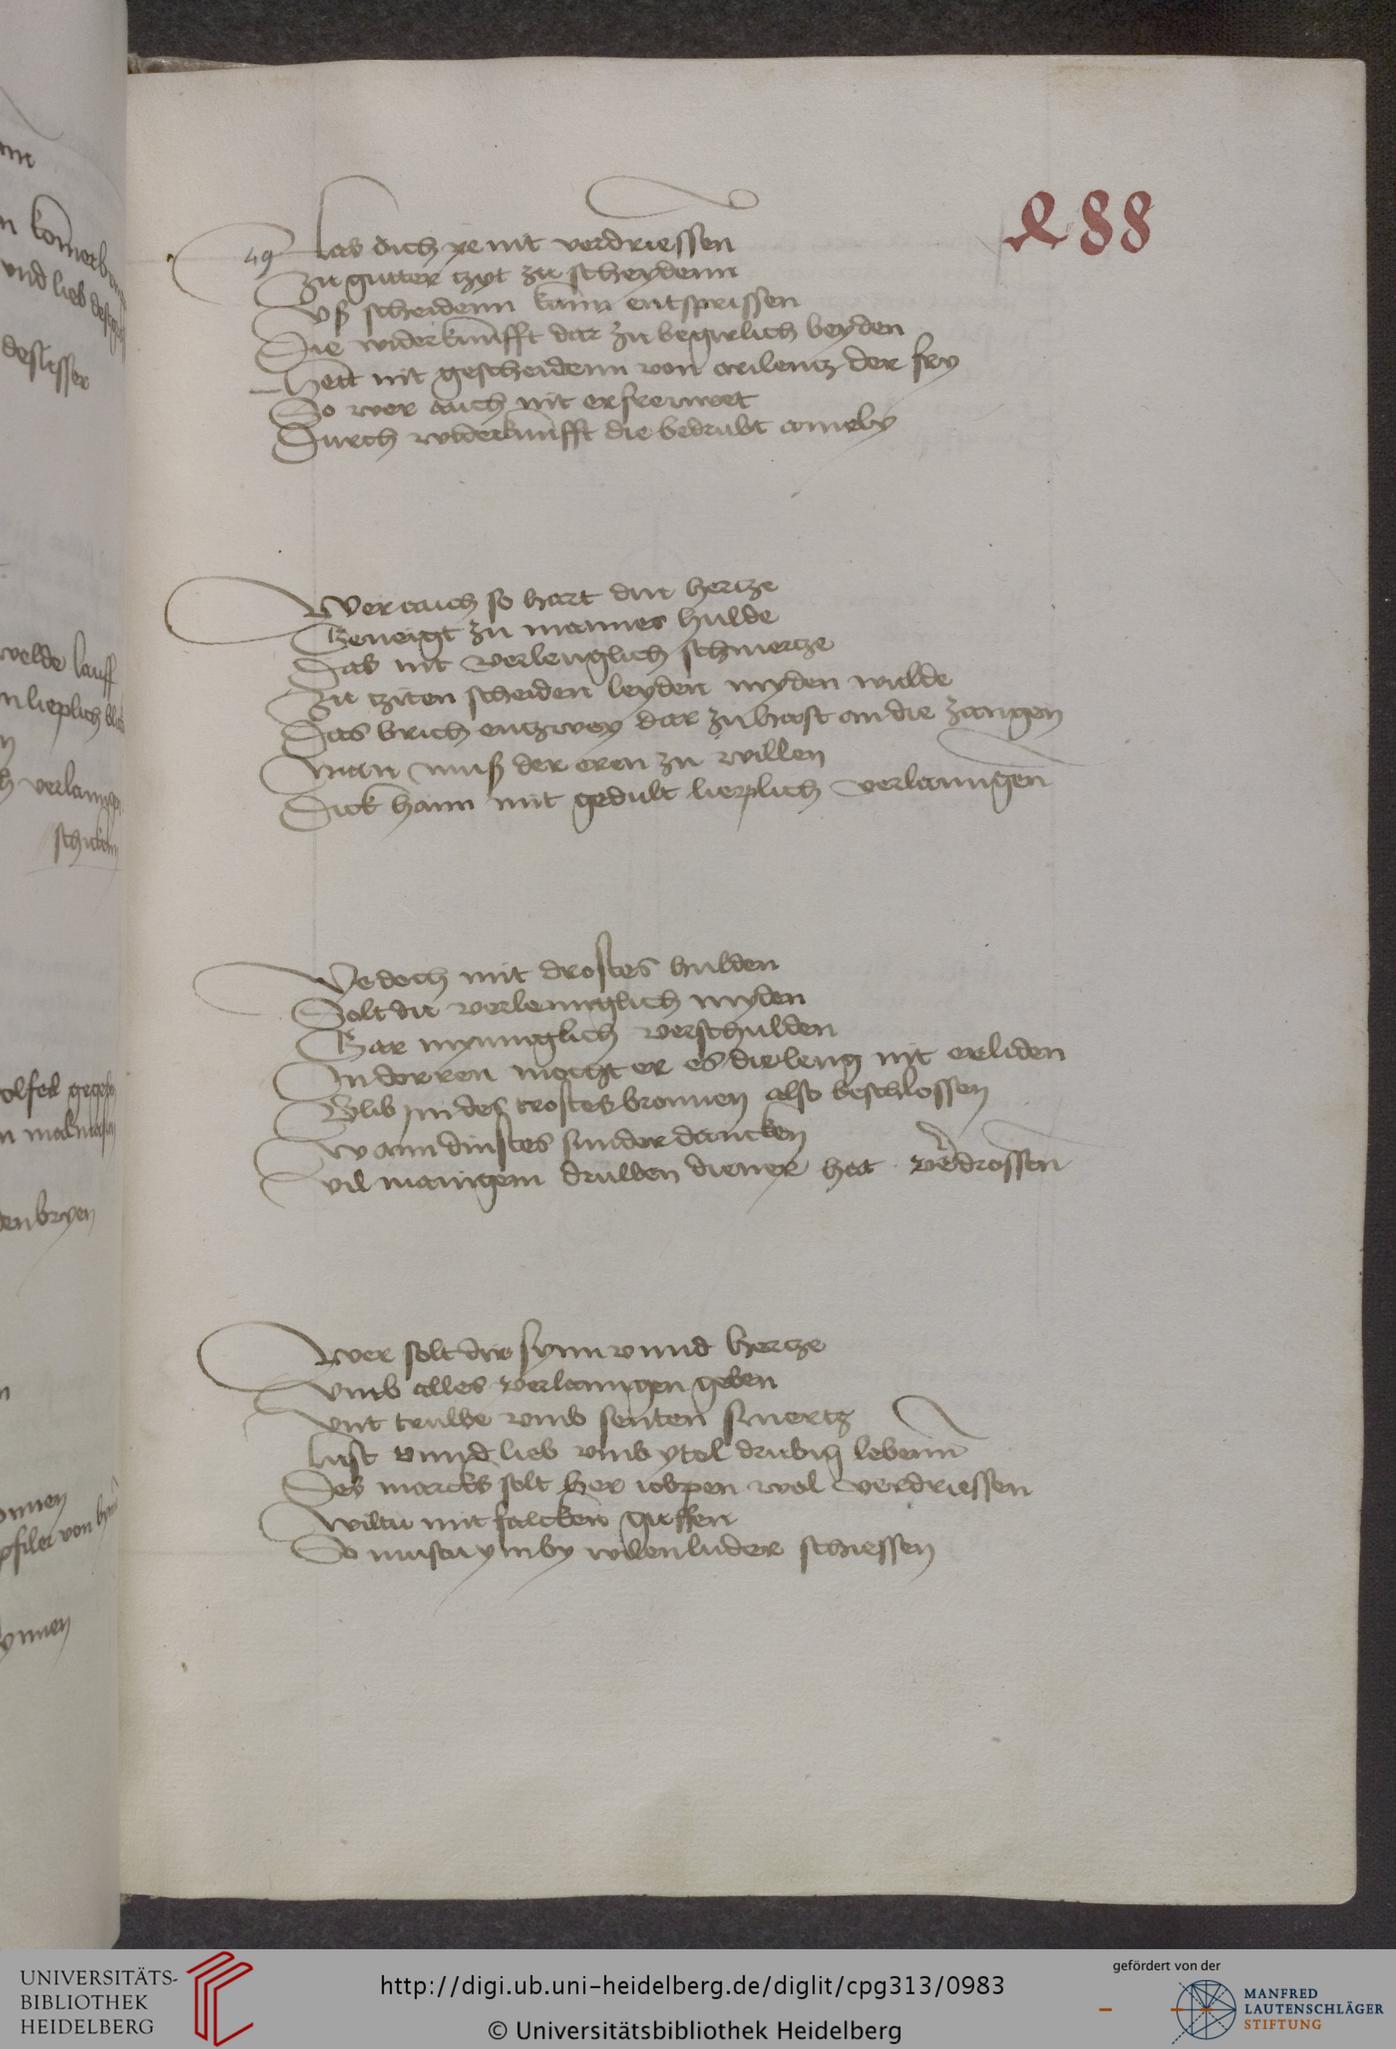 488
49 Las dich ye nit verdriessen
Zu gutter zyt zu scheydenn
Vß scheidenn kann entsprissen
Die widerkunfft dar zu begirlich beyden
Hett nit gescheidenn von orilentz der fry
So wer auch nit erfreuwet
Durch widerkunfft die bedrubt amely
Wer auch so hart din hertze
Geneigt zu mannes hulde
Das nit verlenglich schmertze
Zu ziten scheiden leyden myden wulde
Das brich entzwey dar zu hast an die zangen
Man muß der eren zu willen
Dick hann mit gedult lieplich verlanngen
Yedoch mit drostes hulden
Solt du verlenniglich myden
Gar mynniglich verschulden
In dorren mocht er es die leng nit erliden
Blib in des trostes bronnen also beschlossen
Wann dinstes sunder dancken
Vil manigem druwen diener hat verdrossen
Wer solt dir synn vnnd hertze
Vmb alles verlanngen geben
Vnt truwe vmb senten smertz
Lust vnnd lieb vmb ytel drubig lebenn
Des marcks solt her wol verdriessen
Wiltu mit falcken
So mustu schiessen
UNIVERSITÄTS-
BIBLIOTHEK
HEIDELBERG
http://digi.ub.uni-heidelberg.de/diglit/cpg313/0983
© Universitätsbibliothek Heidelberg
gefördert von der
MANFRED
LAUTENSCHLÄGER
STIFTUNG